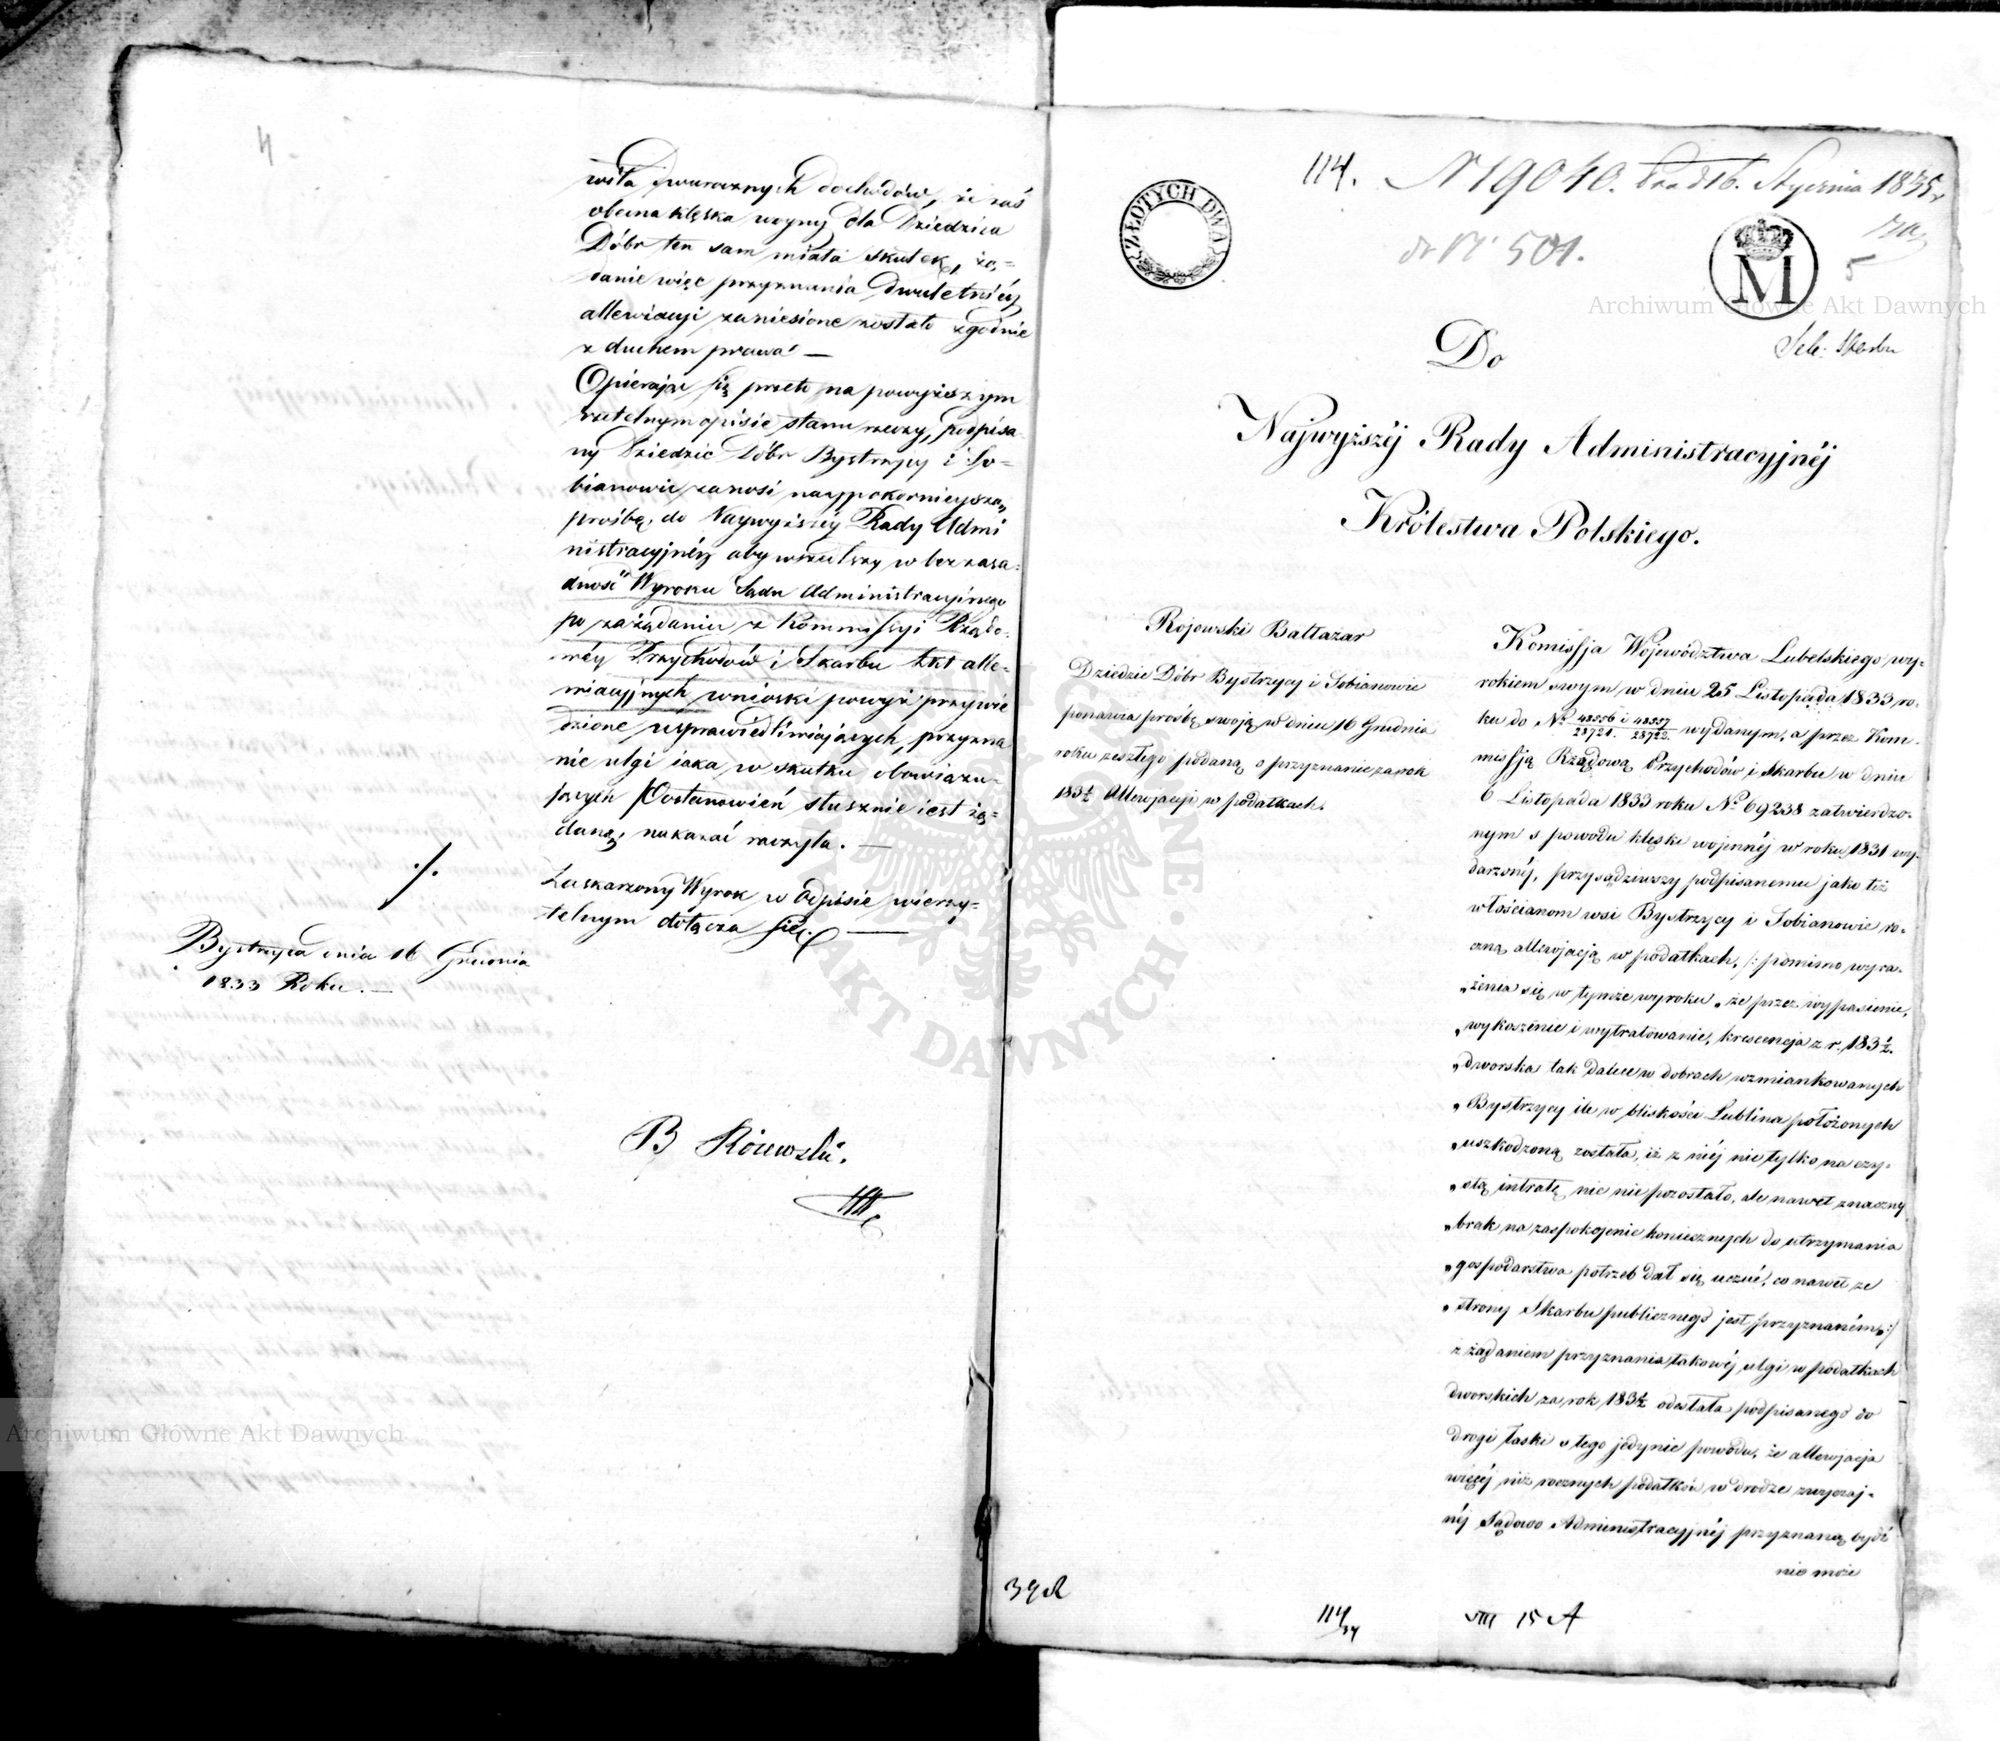 4
wiła dwurocznych dochodów, że zaś
obecna klęska woyny dla Dziedzica
Dóbr ten sam miała skutek, żą=
danie więc przyznania dwuletniéy
allewiacyi zaniesione zostało zgodnie
z duchem prawa —
Opierając się przeto na powyższym
rzetelnym opisie stanu rzeczy, podpisa
ny Dziedzic Dóbr Bystrzycy i So=
bianowic zanosi naypokornieyszą
prośbę, do Naywyższéy Rady Admi
nistracyjnéy aby weszedłszy w bezzasa=
dność Wyroku Sądu Administracyjnego
po zażądaniu z Kommissyi Rządo=
wéy Przychodów i Skarbu Akt alle=
wiacyjnych wnioski powyż przywie
dzione usprawiedliwiających, przyzna
nie ulgi iaka w skutku obowiązu=
jących Postanowień słusznie iest żą=
daną, nakazać raczyła. —
Zaskarzony Wyrok w odpisie wierzy=
telnym dołącza się. —
./.
Bystrzyca dnia 16 Grudnia
1833 Roku. —
B Róiewski.
114. N 19040. 16. Stycznia 1835
do N 501.
ZŁOTYCH DWA
M
5
Skarbu
Do
Najwyższéj Rady Administracyjnéj
Królestwa Polskiego.
Rojewski Baltazar
Dziedzic Dóbr Bystrzycy i Sobianowic
ponawia prośbę swoją w dniu 16 Grudnia
roku zeszłego podaną o przyznanie za rok
183½ Allewjacji w podatkach.
Komissja Województwa Lubelskiego wy=
rokiem swym w dniu 25 Listopada 1833 ro=
ku do No 48556/28721 i 48557/28722 wydanym, a przez Kom=
missją Rządową Przychodów i Skarbu w dniu
6 Listopada 1833 roku No 69238 zatwierdzo=
nym s powodu klęski wojennéj w roku 1831 wy=
darzonéj, przysądziwszy podpisanemu jako téż
włościanom wsi Bystrzycy i Sobianowic ro=
czną allewjacją w podatkach, /: pomimo wyra=
„żenia się w tymże wyroku „że przez wypasienie,
„wykoszenie i wytratowanie, krescencja z r. 183½.
„dworska tak dalece w dobrach wzmiankowanych
„Bystrzycy ile w bliskości Lublina położonych
„uszkodzoną została, iż z niéj nie tylko na czy=
„stą intratę nic nie pozostało, ale nawet znaczny
„brak na zaspokojenie koniecznych do utrzymania
„gospodarstwa potrzeb dał się uczuć, co nawet ze
„strony Skarbu publicznego jest przyznaném„:/
z żądaniem przyznania takowéj ulgi w podatkach
dworskich za rok 183½ odesłała podpisanego do
drogi łaski s tego jedynie powodu, że allewjacja
więcéj niż rocznych podatków w drodze zwyczaj=
néj Sądowo Administracyjnéj przyznaną bydź
nie może
114/34
VIII 15 A
Archiwum Główne Akt Dawnych
Archiwum Główne Akt Dawnych
AKT DAWNYCH